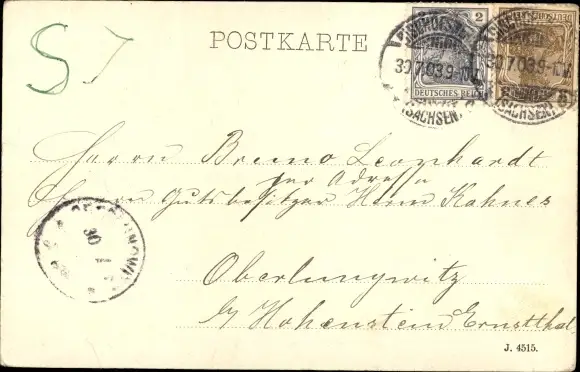 S J
POSTKARTE
2
DEUTSCHES REICH
30.7.03.9-10V.
30.7.03.9-10V.
(SACHSEN)
(SACHSEN)
Herrn Bruno Leonhardt
per Adresse
Herrn Gutsbesitzer Herrn Kahnes
30
Oberlungwitz
b/ Hohenstein Ernstthal
J. 4515.